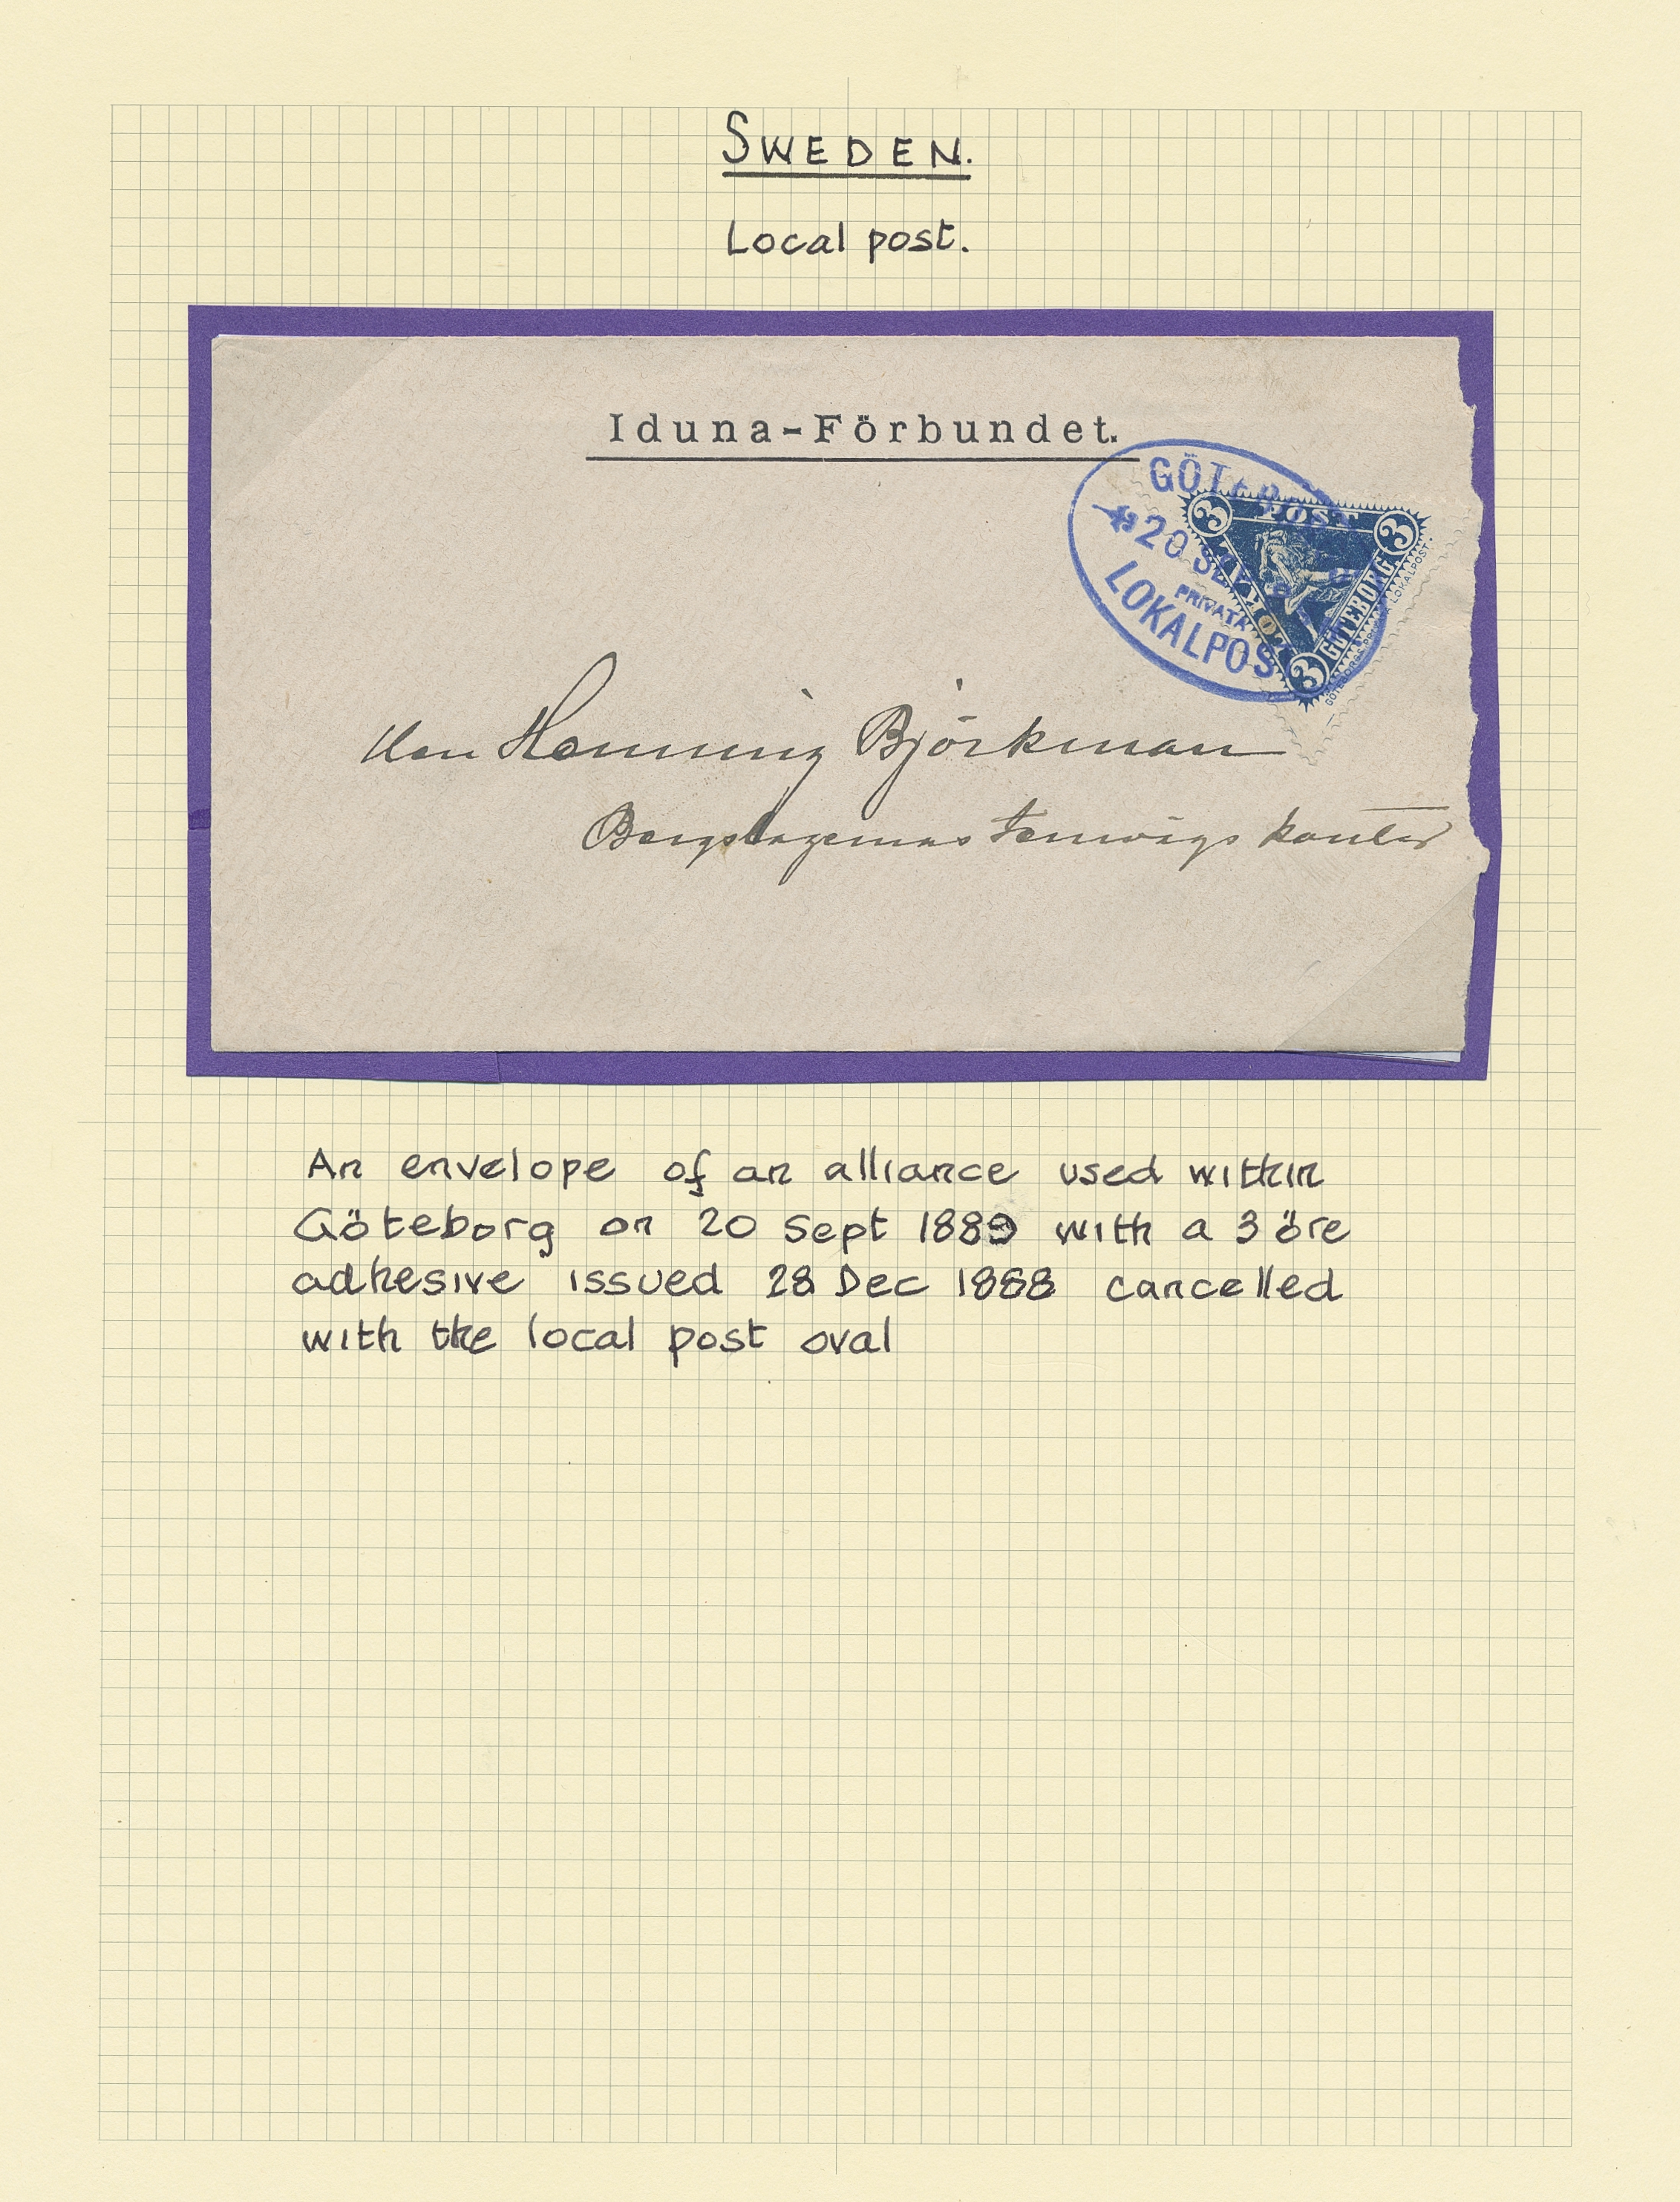 SWEDEN.
Local post.
Iduna-Förbundet.
GÖTEB
20 SEP
PRIVATA
LOKALPOS
3 POST 3
LOKAL
GÖTEBORG
3
GÖTEBORGS PRIVATA LOKALPOST.
Herr Henning Björkman
Bergslagernas Jernvägs kontor
An envelope of an alliance used within
Göteborg on 20 Sept 1889 with a 3 öre
adhesive issued 28 Dec 1888 cancelled
with the local post oval